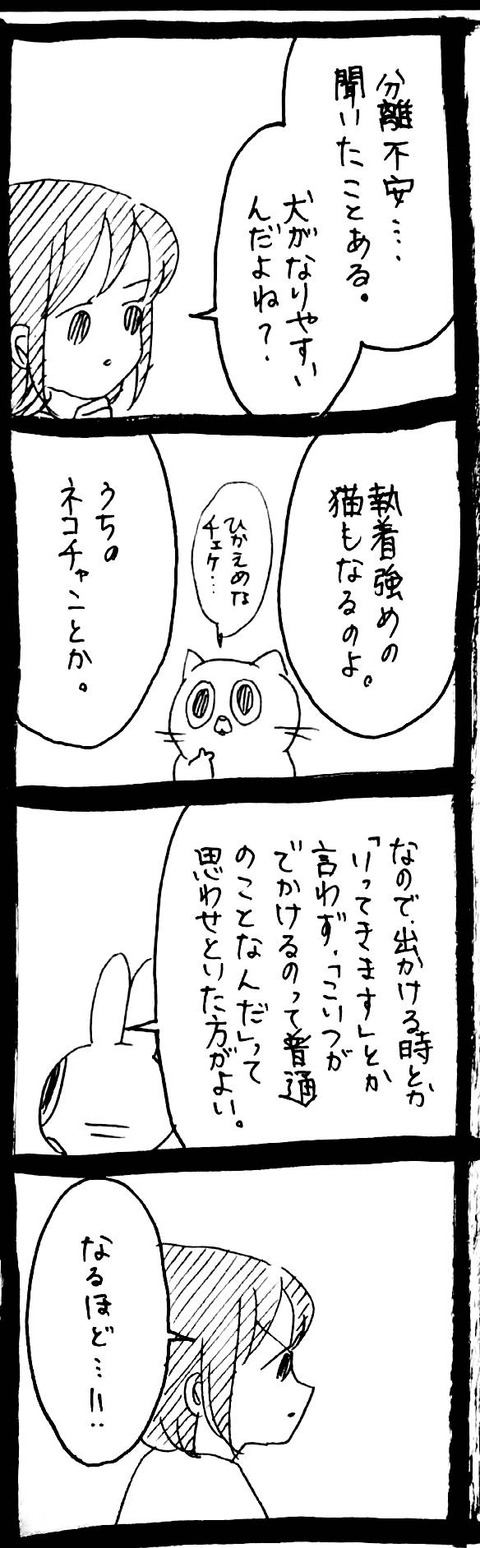 分離不安…、
聞いたことある。
犬がなりやすい
んだよね？
執着強めの
猫もなるのよ。
ひかえめな
チェケ…
うち。
ネコチャンとか。
なので、出かける時とか
「いってきます」とか
言わず、「こいつが
でかけるのって普通
のことなんだ」って
思わせといた方がよい。
なるほど…!!